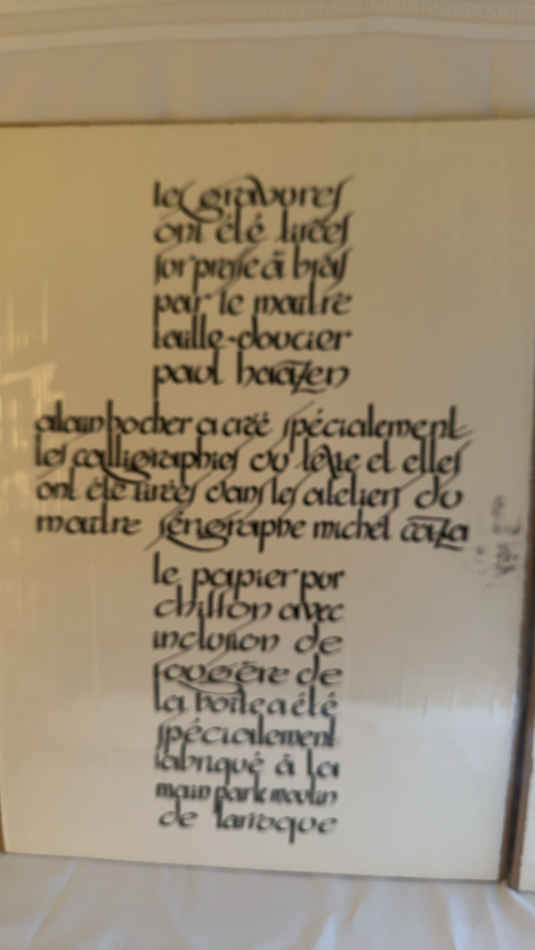 les gravures
ont été tirées
sur presse à bras
par le maître
taille-doucier
paul haasen
alain bocher a créé spécialement
les calligraphies du texte et elles
ont été tirées dans les ateliers du
maître sérigraphe michel caza
le papier pur
chiffon avec
inclusion de
fougère de
la boîte a été
spécialement
fabriqué à la
main par le moulin
de larroque